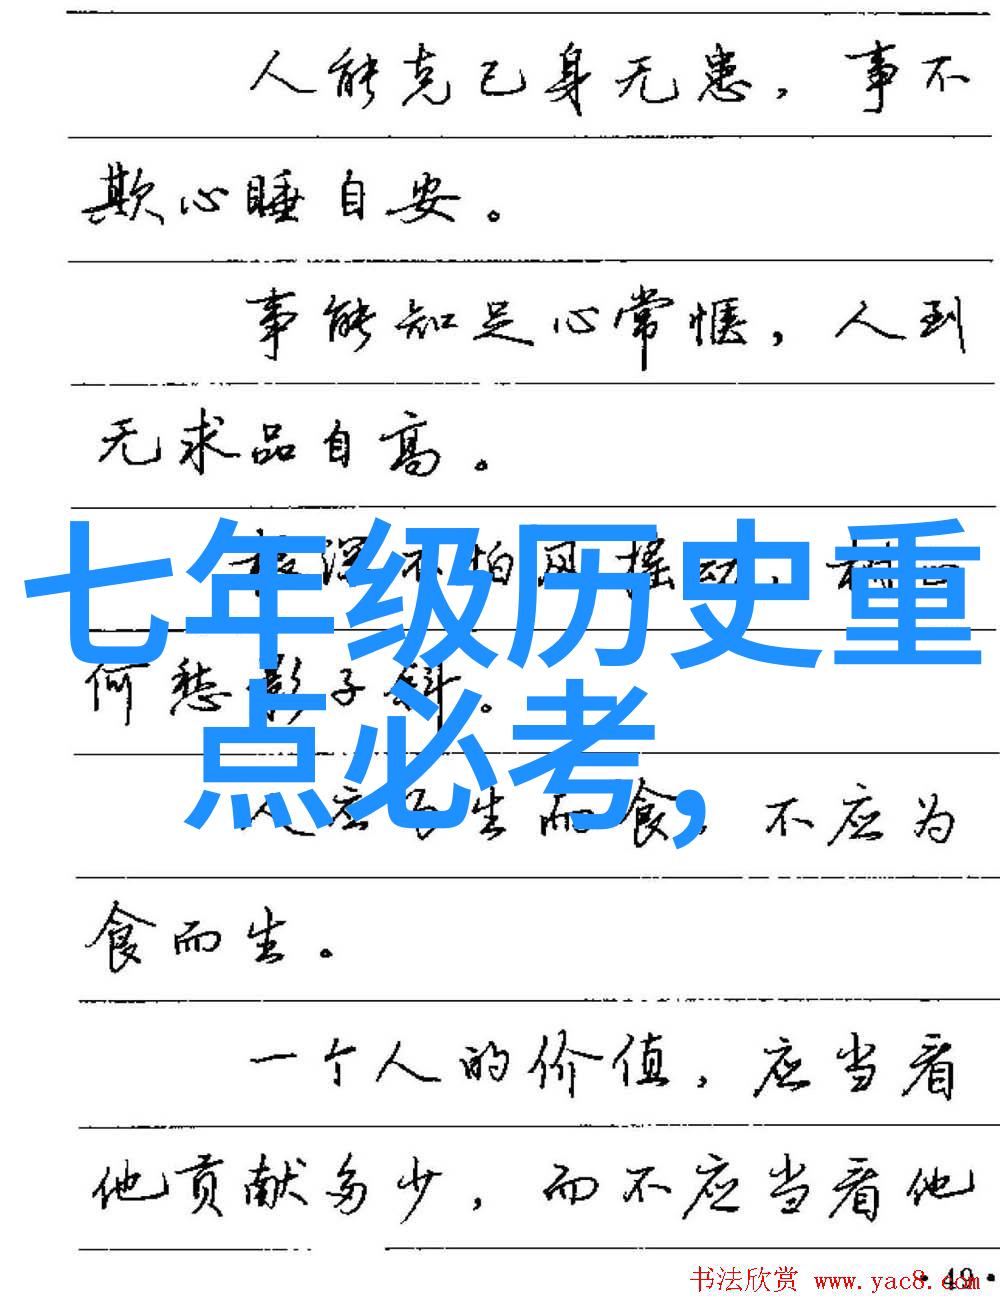 人能克己身无患，事不
欺心睡自安。
事能知足心常惬，人到
无求品自高。
深不怕风摇动，
七年级历史重
何愁影子斜。
点必考，
人应为生而食，不应为
食而生。
一个人的价值，应当看
他贡献多少，而不应当看他
·49·
书法欣赏 www.yac8.com